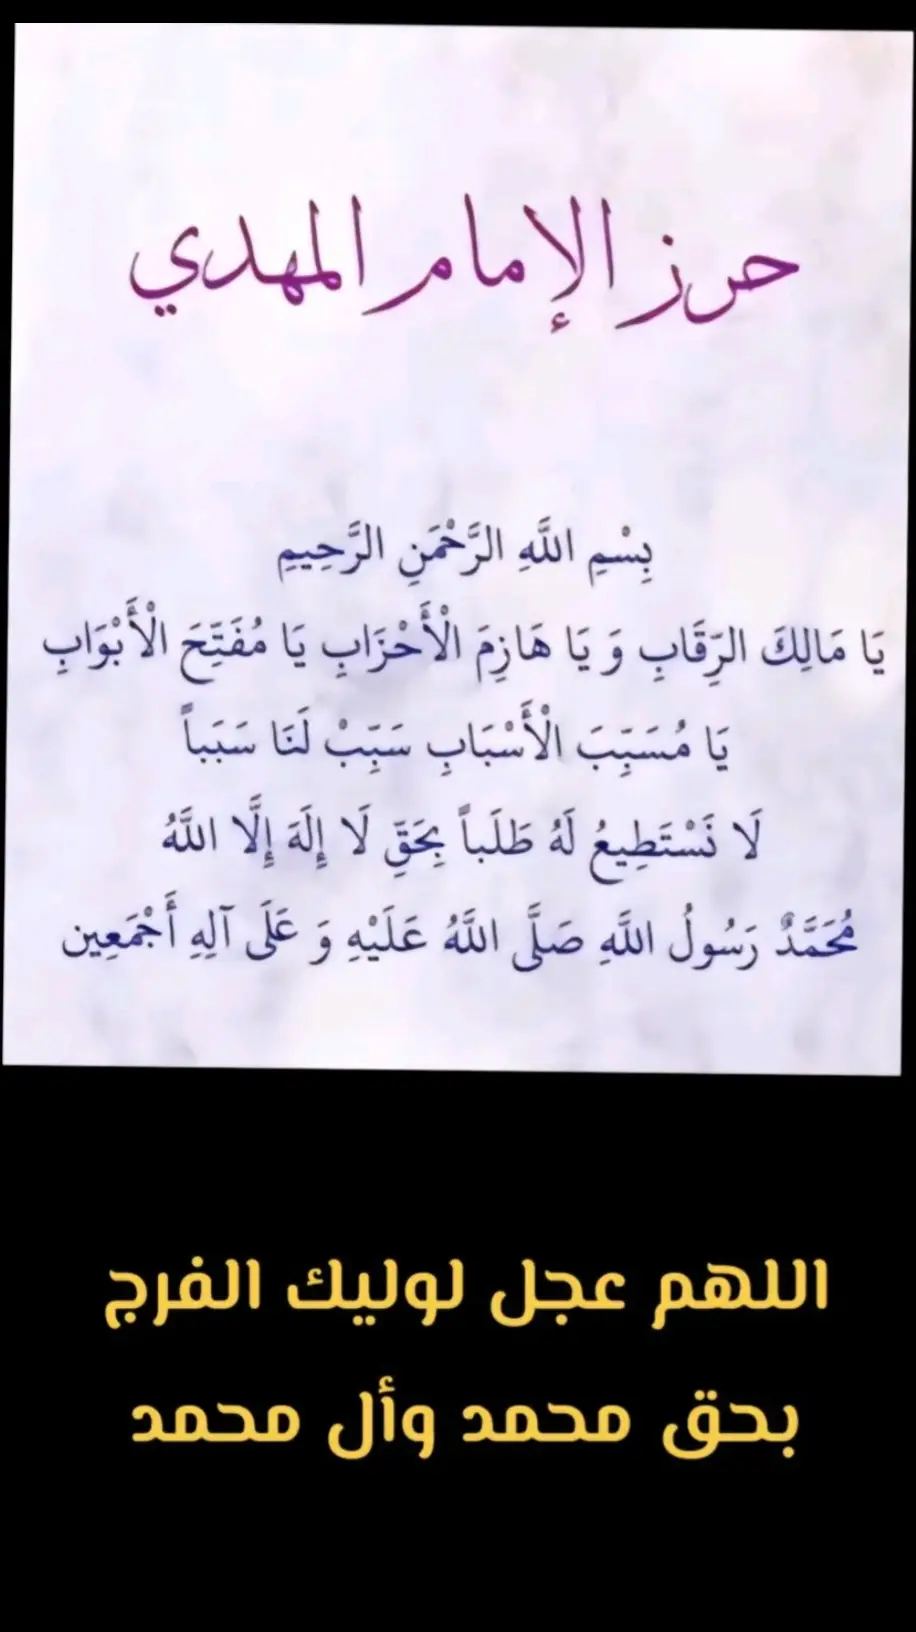 حرز الإمام المهدي
بِسْمِ اللَّهِ الرَّحْمَنِ الرَّحِيمِ
يَا مَالِكَ الرِّقَابِ وَ يَا هَازِمَ الْأَحْزَابِ يَا مُفَتِّحَ الْأَبْوَابِ
يَا مُسَبِّبَ الْأَسْبَابِ سَبِّبْ لَنَا سَبَباً
لَا نَسْتَطِيعُ لَهُ طَلَباً بِحَقِّ لَا إِلَهَ إِلَّا اللَّهُ
مُحَمَّدٌ رَسُولُ اللَّهِ صَلَّى اللَّهُ عَلَيْهِ وَ عَلَى آلِهِ أَجْمَعِين
اللهم عجل لوليك الفرج
بحق محمد وأل محمد